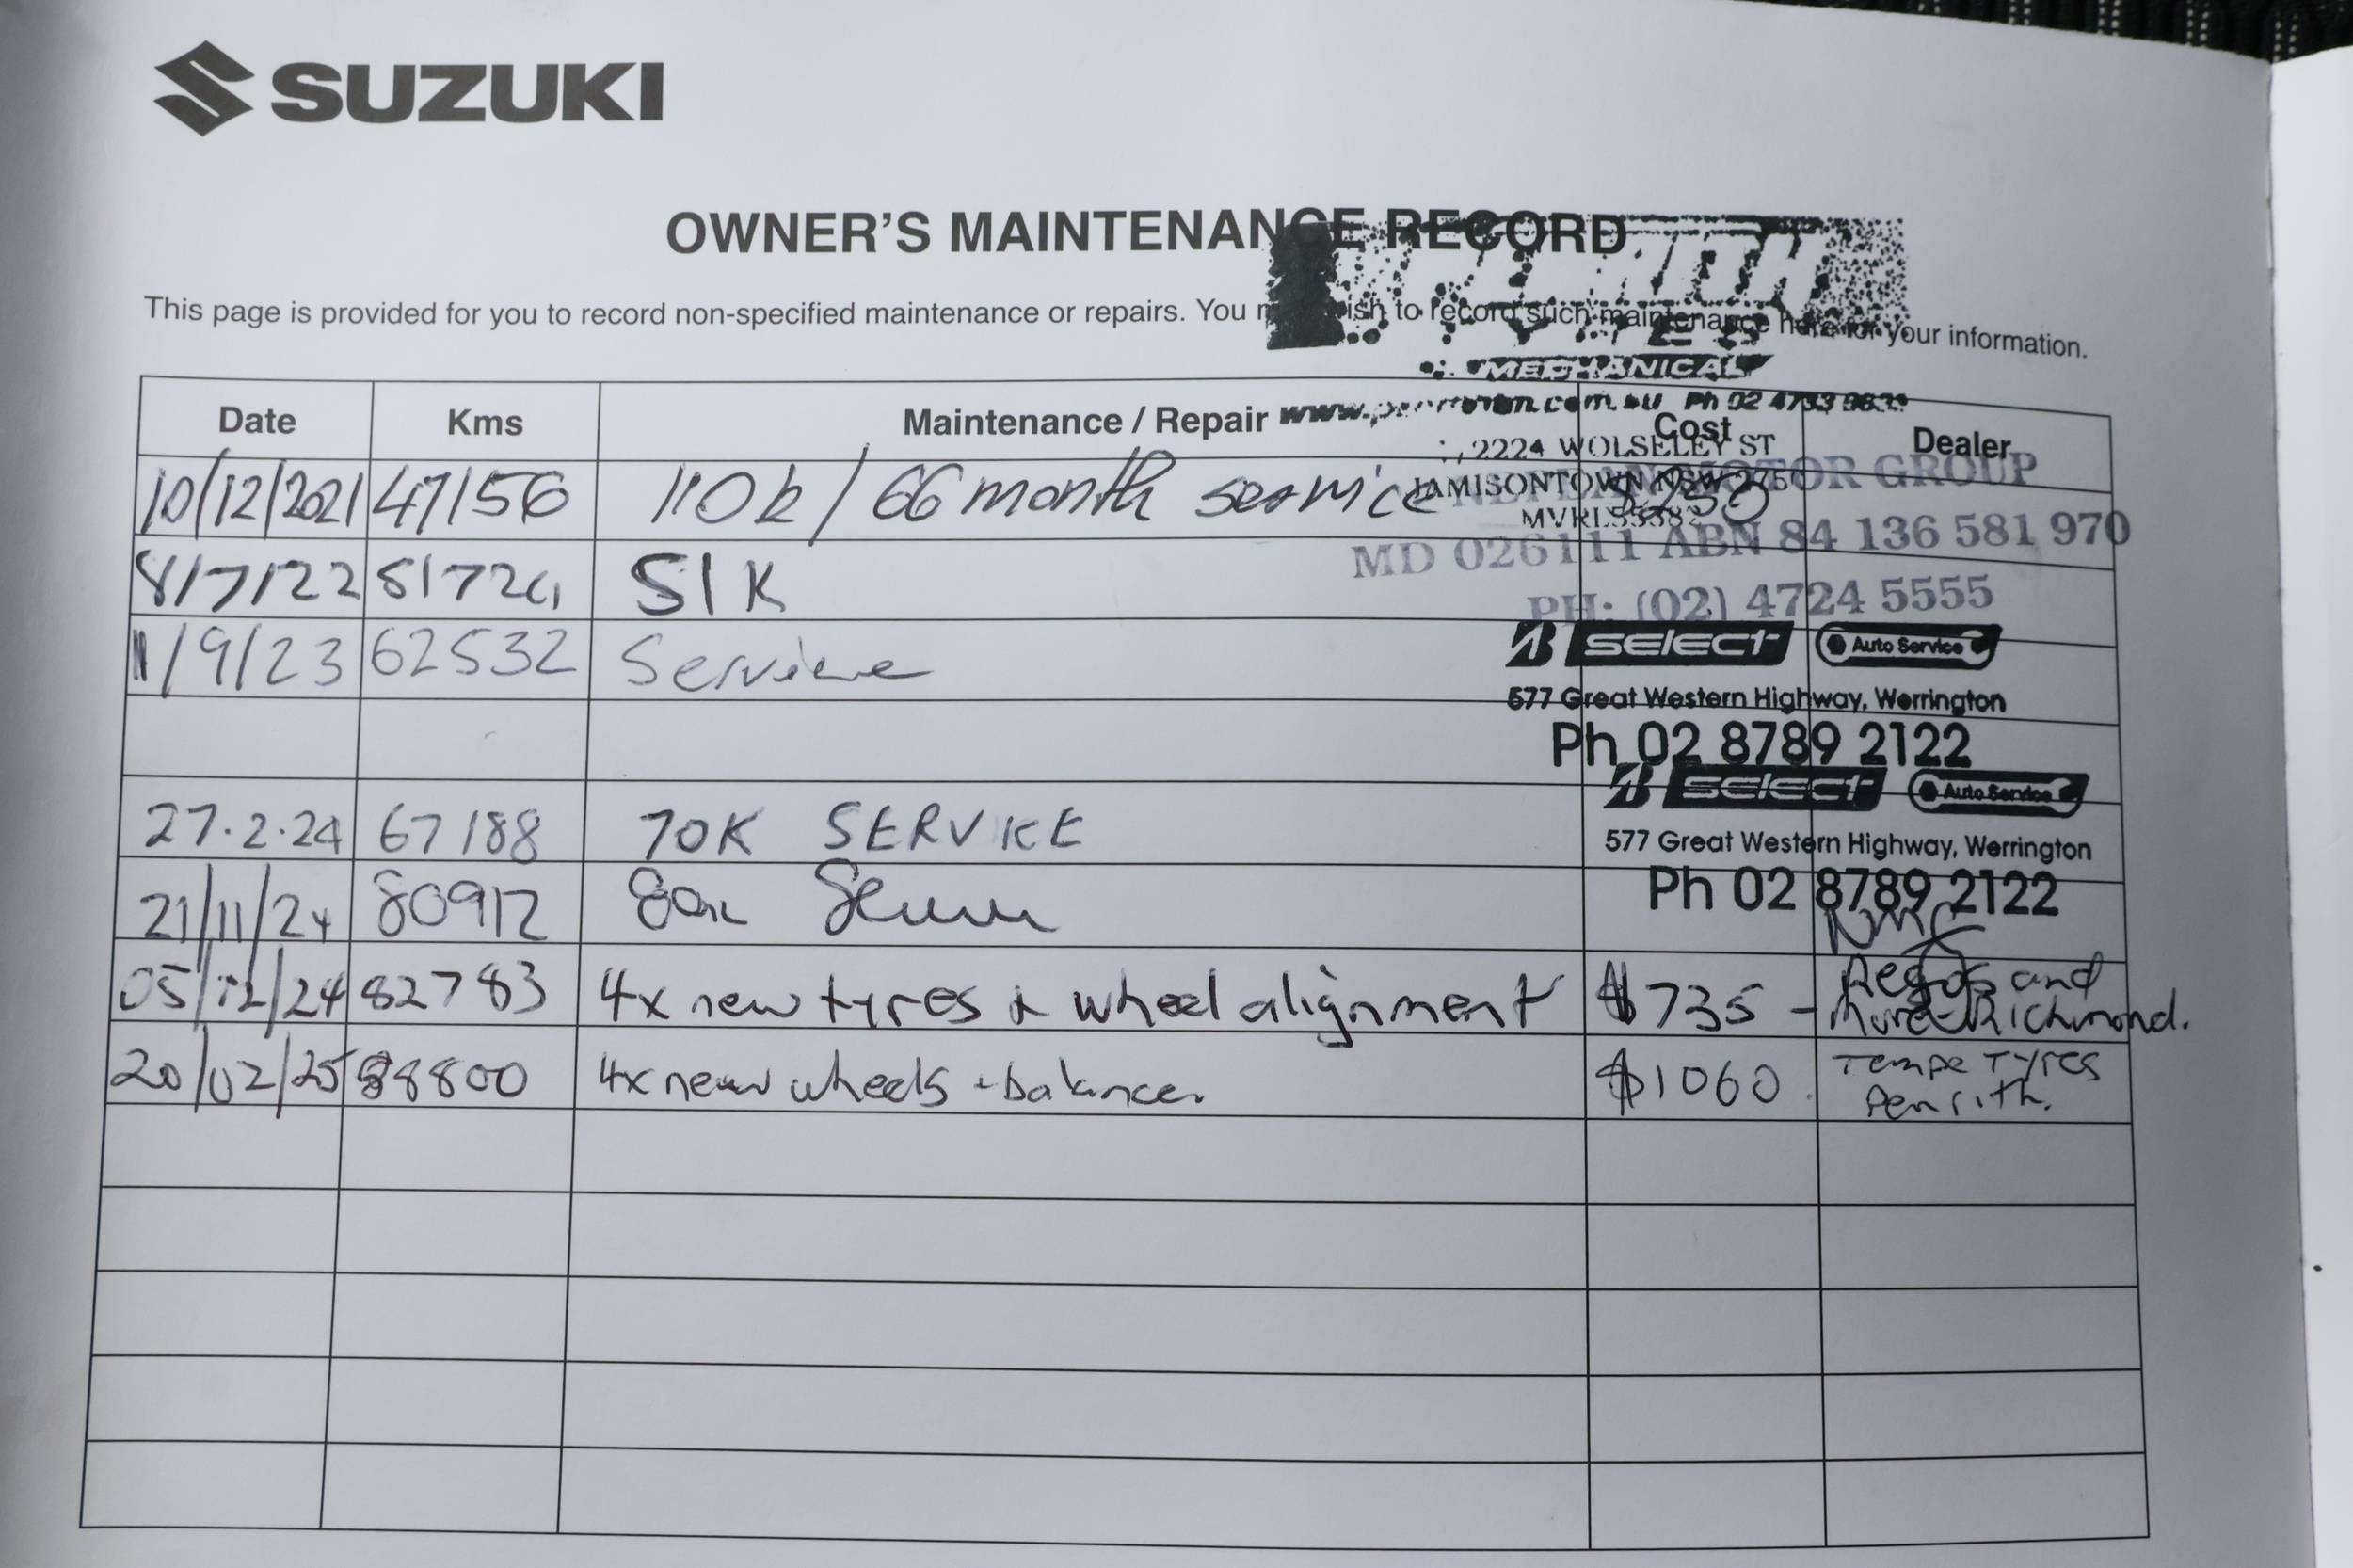 SUZUKI
OWNER'S MAINTENANCE RECORD
This page is provided for you to record non-specified maintenance or repairs. You may wish to record such maintenance here for your information.
MECHANICAL
Date Kms Maintenance / Repair Cost Dealer
www. .com.au Ph 02 4733
2224 WOLSELEY ST
JAMISONTOWN NSW 275
MOTOR GROUP
10/12/2021 47156 110k / 66 month service
MD 026111 ABN 84 136 581 970
8/7/22 51724 51K
PH: (02) 4724 5555
1/9/23 62532 Service
select Auto Service
577 Great Western Highway, Werrington
Ph 02 8789 2122
select Auto Service
27.2.24 67188 70K SERVICE
577 Great Western Highway, Werrington
Ph 02 8789 2122
21/11/24 80912 80k Service NMG
05/12/24 82783 4x new tyres & wheel alignment $735 - Regos and More - Richmond.
20/02/25 88800 4x new wheels + balance. $1060. Tempe Tyres Penrith.